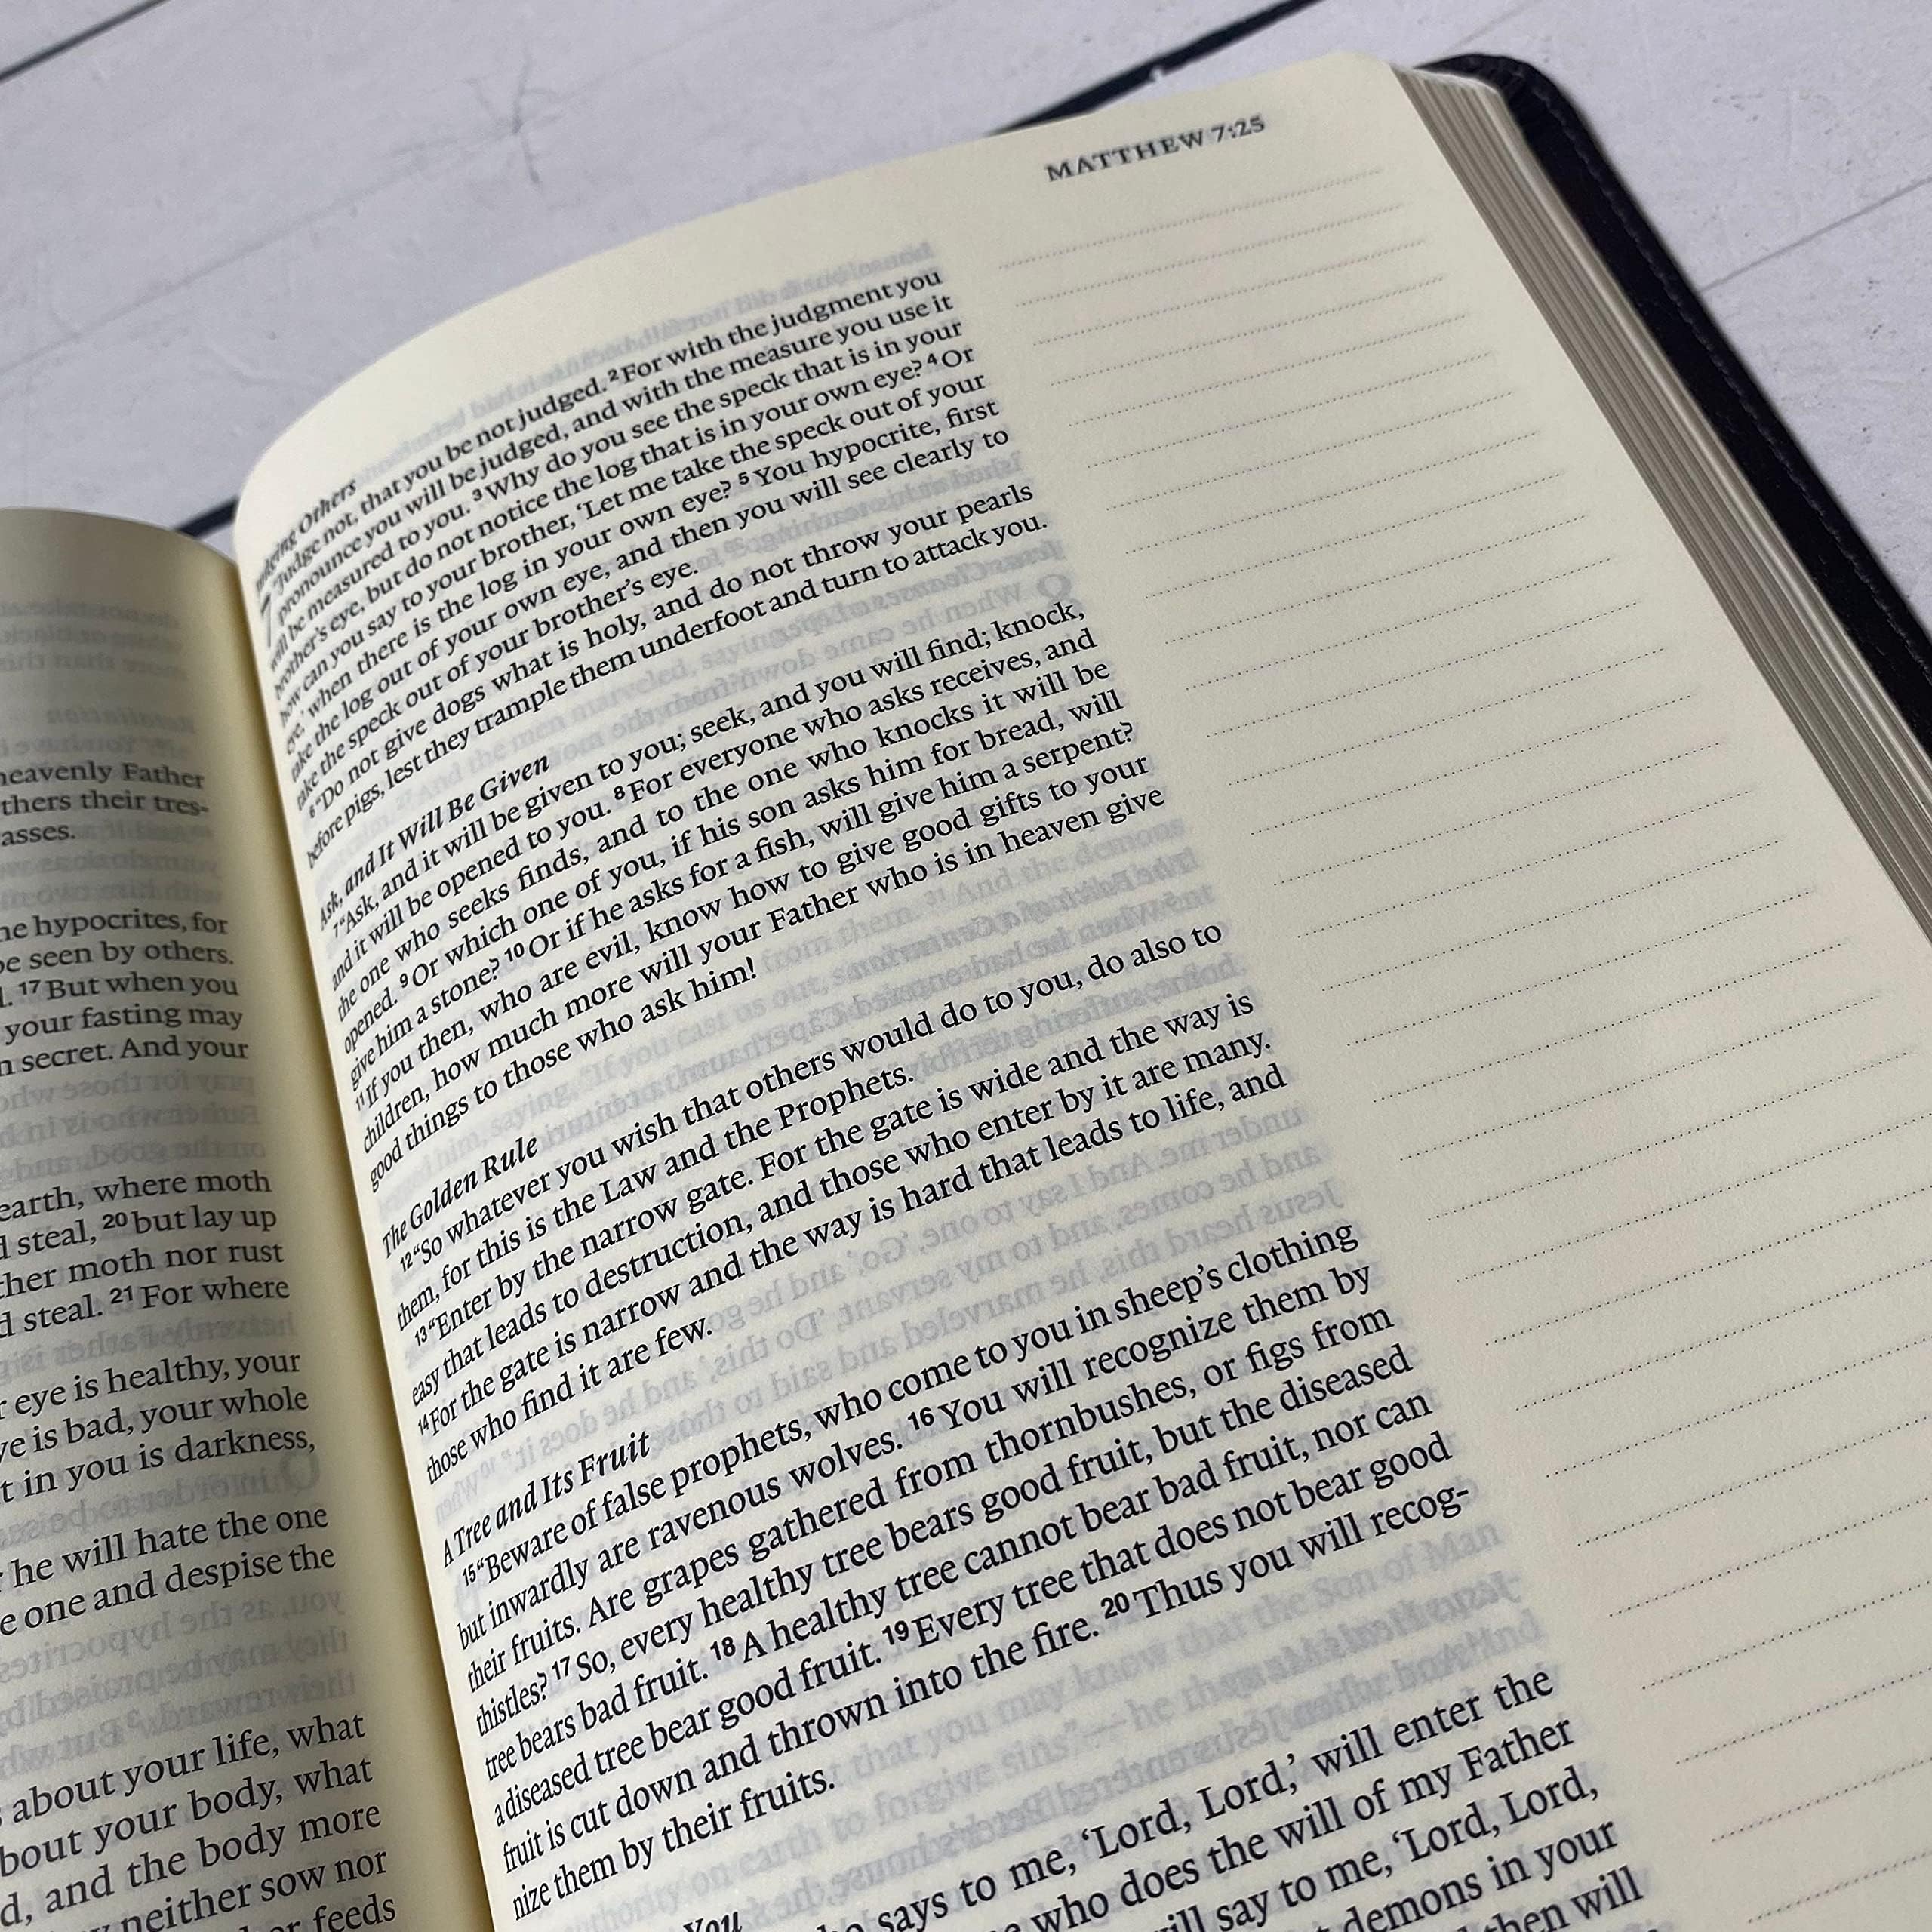 heavenly Father
thers their tres-
asses.
he hypocrites, for
be seen by others.
17 But when you
your fasting may
n secret. And your
earth, where moth
d steal, 20 but lay up
ther moth nor rust
d steal. 21 For where
eye is healthy, your
is bad, your whole
t in you is darkness,
he will hate the one
e one and despise the
about your life, what
bout your body, what
d, and the body more
neither sow nor
feeds
MATTHEW 7:25
Judging Others
7 “Judge not, that you be not judged. 2 For with the judgment you
pronounce you will be judged, and with the measure you use it
will be measured to you. 3 Why do you see the speck that is in your
brother’s eye, but do not notice the log that is in your own eye? 4 Or
how can you say to your brother, ‘Let me take the speck out of your
eye,’ when there is the log in your own eye? 5 You hypocrite, first
take the log out of your own eye, and then you will see clearly to
take the speck out of your brother’s eye.
6 “Do not give dogs what is holy, and do not throw your pearls
before pigs, lest they trample them underfoot and turn to attack you.
Ask, and It Will Be Given
7 “Ask, and it will be given to you; seek, and you will find; knock,
and it will be opened to you. 8 For everyone who asks receives, and
the one who seeks finds, and to the one who knocks it will be
opened. 9 Or which one of you, if his son asks him for bread, will
give him a stone? 10 Or if he asks for a fish, will give him a serpent?
11 If you then, who are evil, know how to give good gifts to your
children, how much more will your Father who is in heaven give
good things to those who ask him!
The Golden Rule
12 “So whatever you wish that others would do to you, do also to
them, for this is the Law and the Prophets.
13 “Enter by the narrow gate. For the gate is wide and the way is
easy that leads to destruction, and those who enter by it are many.
14 For the gate is narrow and the way is hard that leads to life, and
those who find it are few.
A Tree and Its Fruit
15 “Beware of false prophets, who come to you in sheep’s clothing
but inwardly are ravenous wolves. 16 You will recognize them by
their fruits. Are grapes gathered from thornbushes, or figs from
thistles? 17 So, every healthy tree bears good fruit, but the diseased
tree bears bad fruit. 18 A healthy tree cannot bear bad fruit, nor can
a diseased tree bear good fruit. 19 Every tree that does not bear good
fruit is cut down and thrown into the fire. 20 Thus you will recog-
nize them by their fruits.
You
says to me, ‘Lord, Lord,’ will enter the
who does the will of my Father
will say to me, ‘Lord, Lord,
demons in your
then will